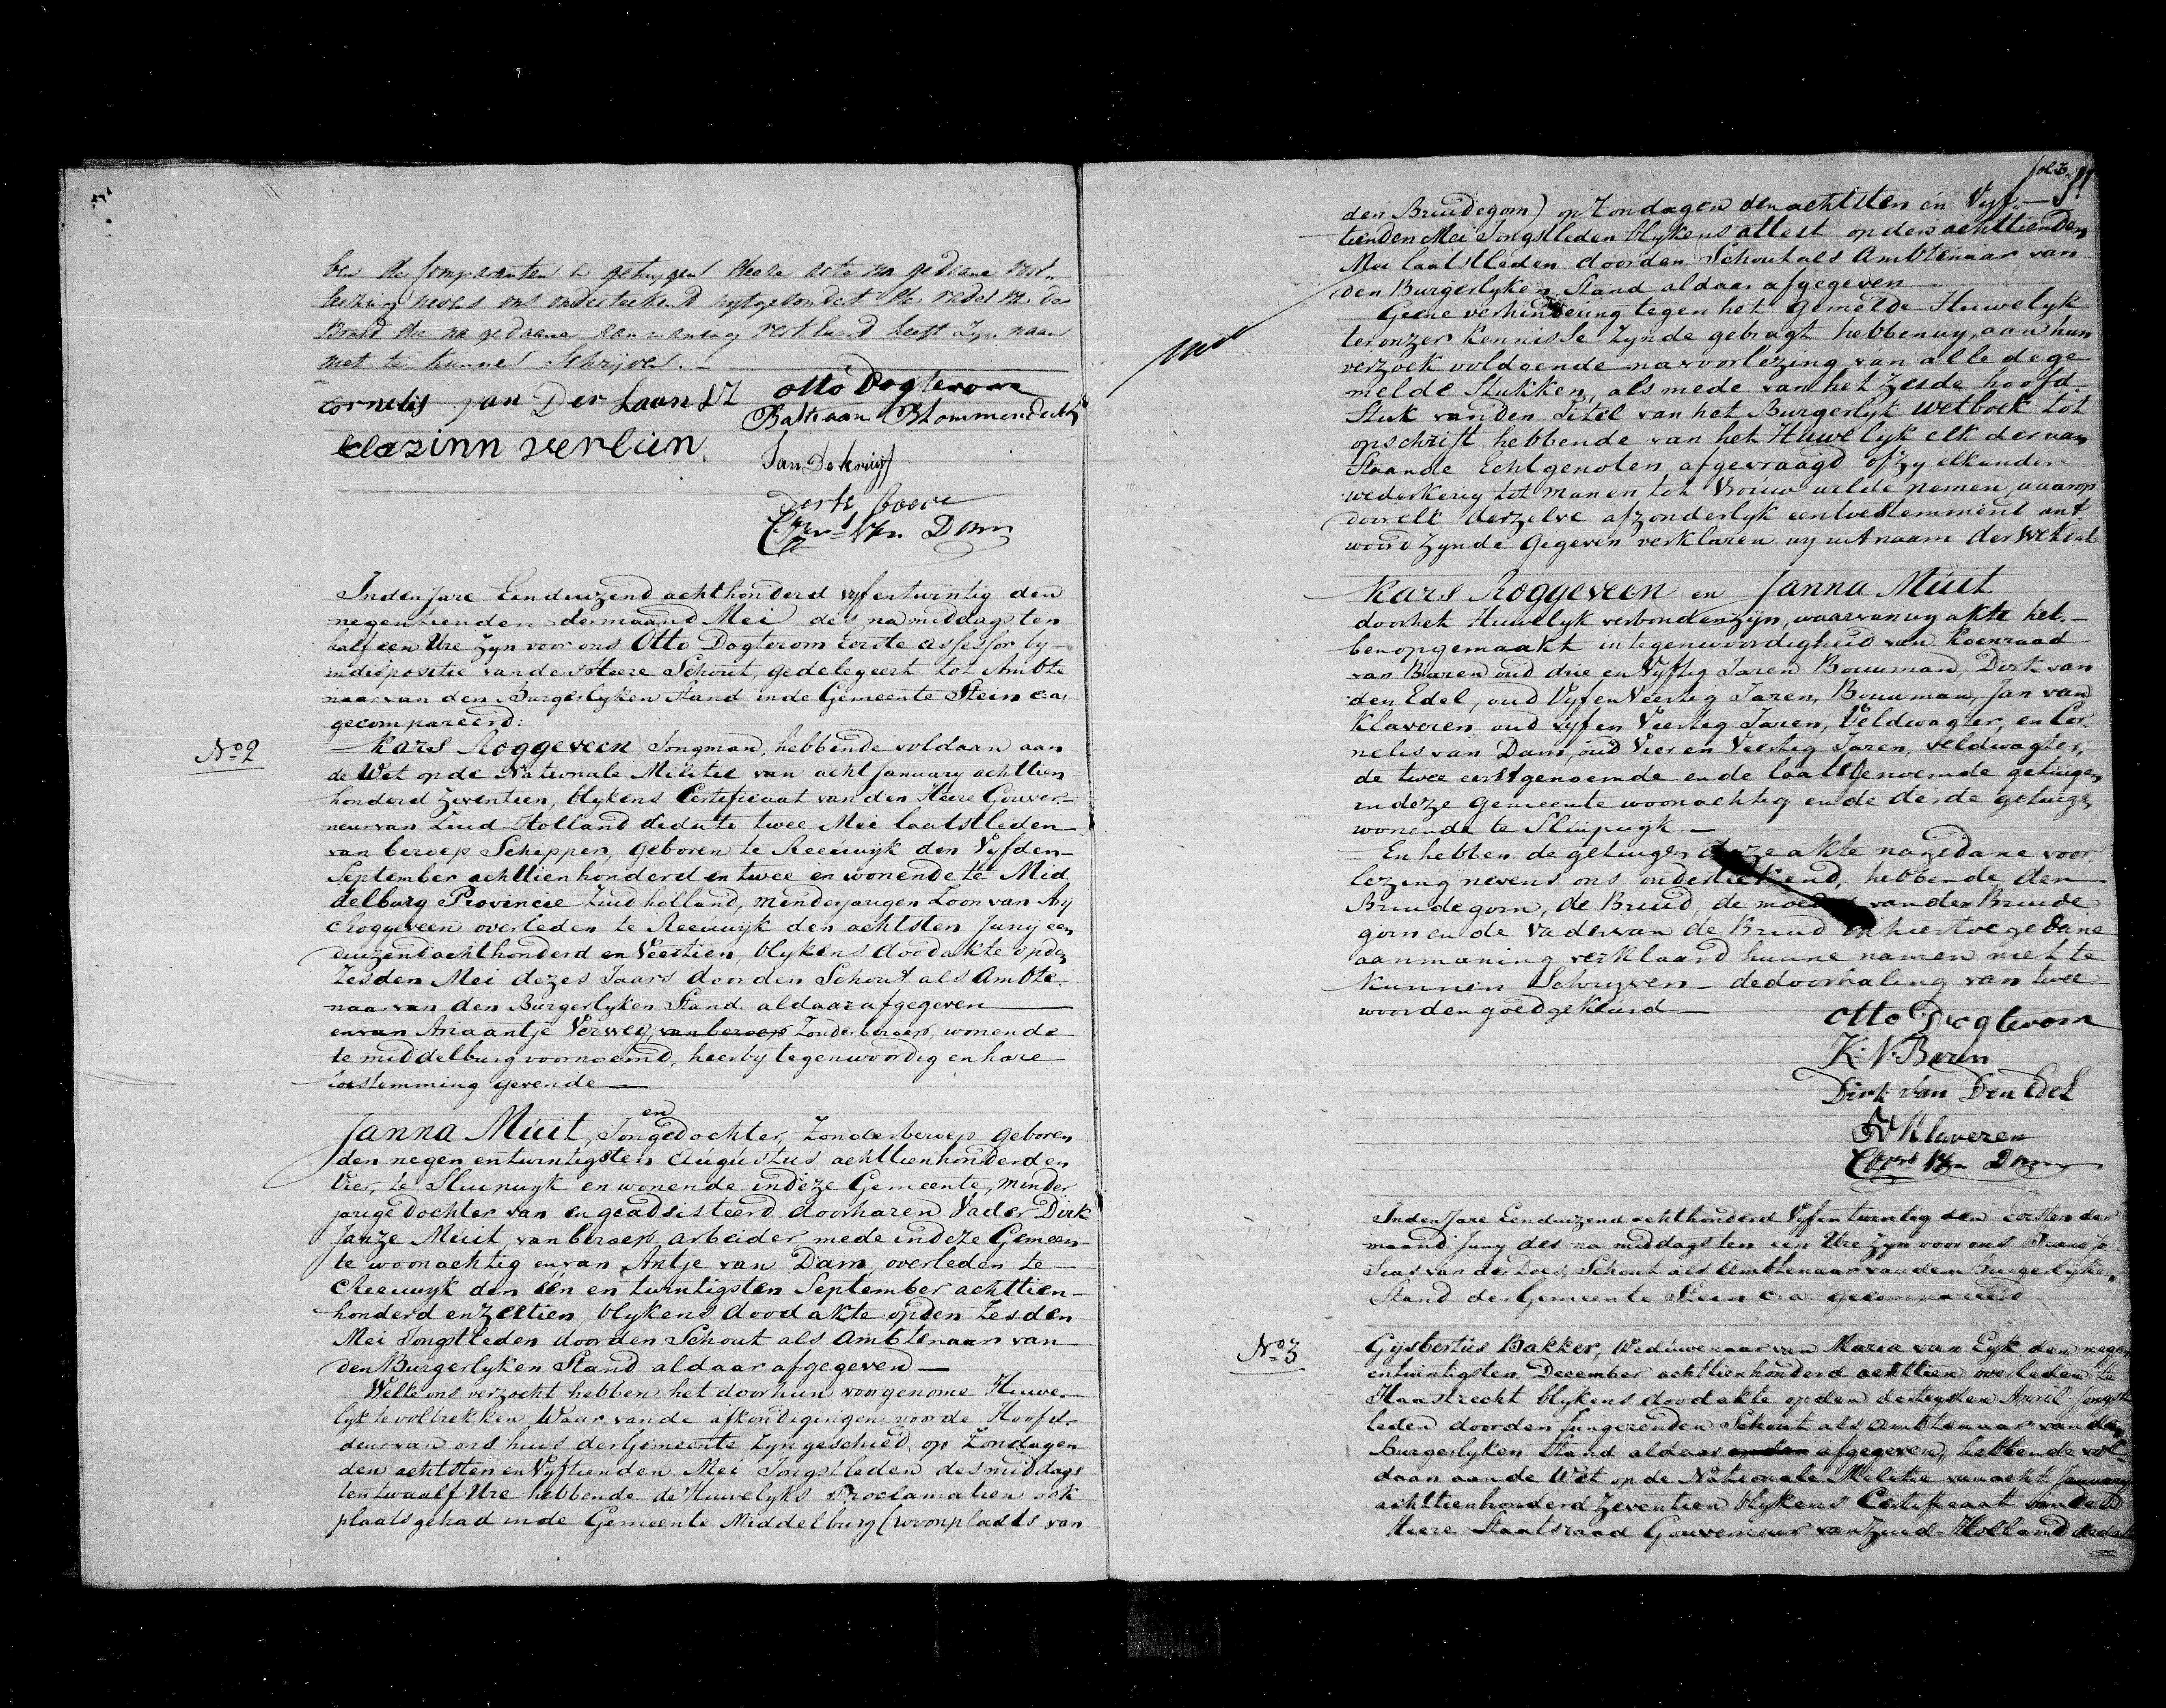 ben de Comparanten en getuygen deeze acte na gedaane voor„
leezing nevens ons onderteekend uytgezondert de vader van de
Bruid die na gedaane aanmaning verklaard heeft zyn naam
niet te kunnen Schrijven. –
Cornelis van Der Laan
otto Dogterom
Bastiaan Blommendaal
klazinn verleun.
Jan De kruijf
Derk
Corns Van Dam
Inden Jare Eenduizend achthonderd vyfentwintig den
negentienden dermaand Mei des na middags ten
half een Ure Zyn voor ons Otto Dogterom Eerste assessor by
indispositie vanden Heere Schout, gedelegeert tot Ambte
naar van den Burgerlyken Stand inde Gemeente Stein ca
gecompareerd:
No 2
Kars Roggeveen Jongman, hebbende voldaan aan
de Wet op de Nationale Militie van acht January achttien
honderd Zeventien, blykens Certificaat van den Heere Gouver„
neur van Zuid Holland dedato twee Mei laatstleden
van beroep Schipper, geboren te Reeuwyk den Vyfden
September achttienhonderd en twee en wonende te Mid
delburg Provincie Zuid holland, minderjarigen Zoon van Ary
Roggeveen overleden te Reeuwyk den achtsten Juny een
duizend achthonderd en Veertien, blykens doodakte op den
Zesden Mei dezes Jaars door den Schout als Ambte
naar van den Burgerlyken Stand aldaar afgegeven
en van Anaantje Verwey, van beroep Zonder beroep, wonende
te middelburg voornoemd, heerby tegenwoordig en hare
toestemming gevende
en
Janna Muit, Jongedochter, Zonder beroep geboren
den negen entwintigsten Augustus achttienhonderd en
Vier, te Sluipwyk en wonende indeze Gemeente, minder
jarige dochter van en geadsisteerd doorharen Vader Dirk
Janze Muit, van beroep arbeider, mede indeze Gemeen
te woonachtig en van Antje van Dam, overleden te
Reeuwyk den één en twintigsten September achttien
honderd en Zestien, blykens dood akte op den Zesden
Mei Jongstleden doorden Schout als Ambtenaar van
den Burgerlyken Stand aldaar afgegeven
Welke ons verzocht hebben het door hun voorgenome Huwe„
lyk te voltrekken Waar van de afkondigingen voor de Hoofd„
deur van ons huis der Gemeente Zyn geschied op Zondagen
den achtsten en Vyftienden Mei Jongstleden des middags
ten twaalf Ure hebbende de Huwelyks Proclamatien ook
plaats gehad inde Gemeente Middelburg (woonplaats van
fol 3.
den Bruidegom) op Zondagen den achtsten en Vyf„
tienden Mei Jongstleden blykens attest op den achttienden
Mei laatstleden doorden Schout als Ambtenaar van
den Burgerlyken Stand aldaar afgegeven
Geene verhindering tegen het gemelde Huwelyk
ter onzer kennisse Zynde gebragt hebben wy, aan hun
verzoek voldoende na voorlezing van alle de ge
melde Stukken, als mede van het Zesde hoofd
Stuk van den Titel van het Burgerlyk Wetboek tot
opschrift hebbende van het Huwelyk elk der aan
staande Echtgenoten afgevraagd of zy elkander
wederkerig tot man en tot Vrouw wilde nemen, waarop
door elk derzelve afzonderlyk een toestemment ant
woord Zynde gegeven verklaren wy uit naam der Wet dat
Kars Roggeveen en Janna Muit
door het Huwelyk verbonden zyn, waarvan wy akte heb„
ben opgemaakt in tegenwoordigheid van Koenraad
van Buren oud drie en Vyftig Jaren Bouwman, Dirk van
den Edel, oud Vyf en Veertig Jaren, Bouwman, Jan van
Klaveren oud vyf en Veertig Jaren, Veldwagter, en Cor
nelis van Dam, oud Vier en Veertig Jaren, veldwagter,
de twee eerstgenoemde en de laatstgenoemde getuigen
in deze gemeente woonachtig en de derde getuige
wonende te Sluipwyk
En hebben de getuigen deze akte na gedane voor
lezing nevens ons onderteekend, hebbende den
Bruidegom, de Bruid, de moeder van den Bruide
gom en de Vader van de Bruid hiertoe gedane
aanmaning verklaard hunne namen niet te
kunnen Schryven – de doorhaling van twee
woorden goedgekeurd
otto Dogterom
K: V: Buren
Dirk Van Den Edel
JV Klaveren
Corns Van Dam
Inden Jare Eenduizend achthonderd Vyfentwintig den Eersten der
maand Juny des na middags ten een Ure Zyn voor ons Frans Jo
sias van der Does, Schout als Ambtenaar van den Burgerlyken
Stand der Gemeente Stein ca gecompareerd
No 3
Gijsbertus Bakker, Weduwenaar van Maria van Eyk den negen
entwintigsten December achttienhonderd achttien overleden te
Haastrecht blykens doodakte op den dertigsten April Jongst
leden door den fungerenden Schout als Ambtenaar van den
Burgerlyken Stand aldaar afgegeven, hebbende vol„
daan aan de Wet op de Nationale Militie van acht January
achttienhonderd Zeventien blykens Certificaat van den
Heere Staatsraad Gouverneur van Zuid-Holland dedato